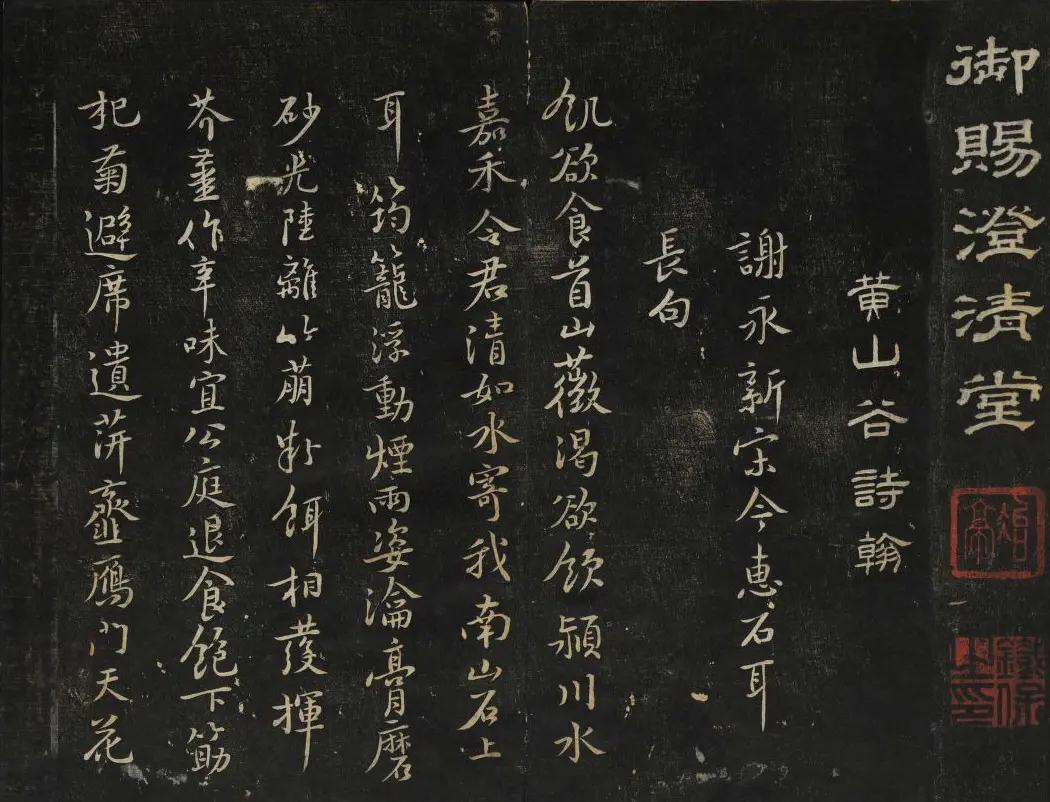 御賜澄清堂
冶亭
鐵保之印
黃山谷詩翰
謝永新宋令惠石耳
長句
飢欲食首山薇渴欲飲潁川水
嘉禾令君清如水寄我南山石上
耳筠籠浮動煙雨姿瀹膏磨
砂光陸離竹萠粉餌相發揮
芥薑作辛味宜公庭退食飽下筯
杞菊避席遺蓱虀鴈門天花